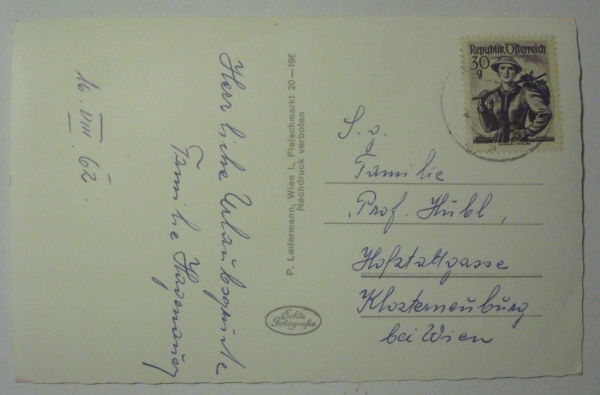 16. VIII. 62.
Herrliche Urlaubsgrüße
Familie Hagenauer
P. Ledermann, Wien I., Fleischmarkt 20—196
Nachdruck verboten
Echte
Fotografie
Republik Österreich
30
g
S. g.
Familie
Prof. Hübl,
Hofstattgasse
Klosterneuburg
bei Wien